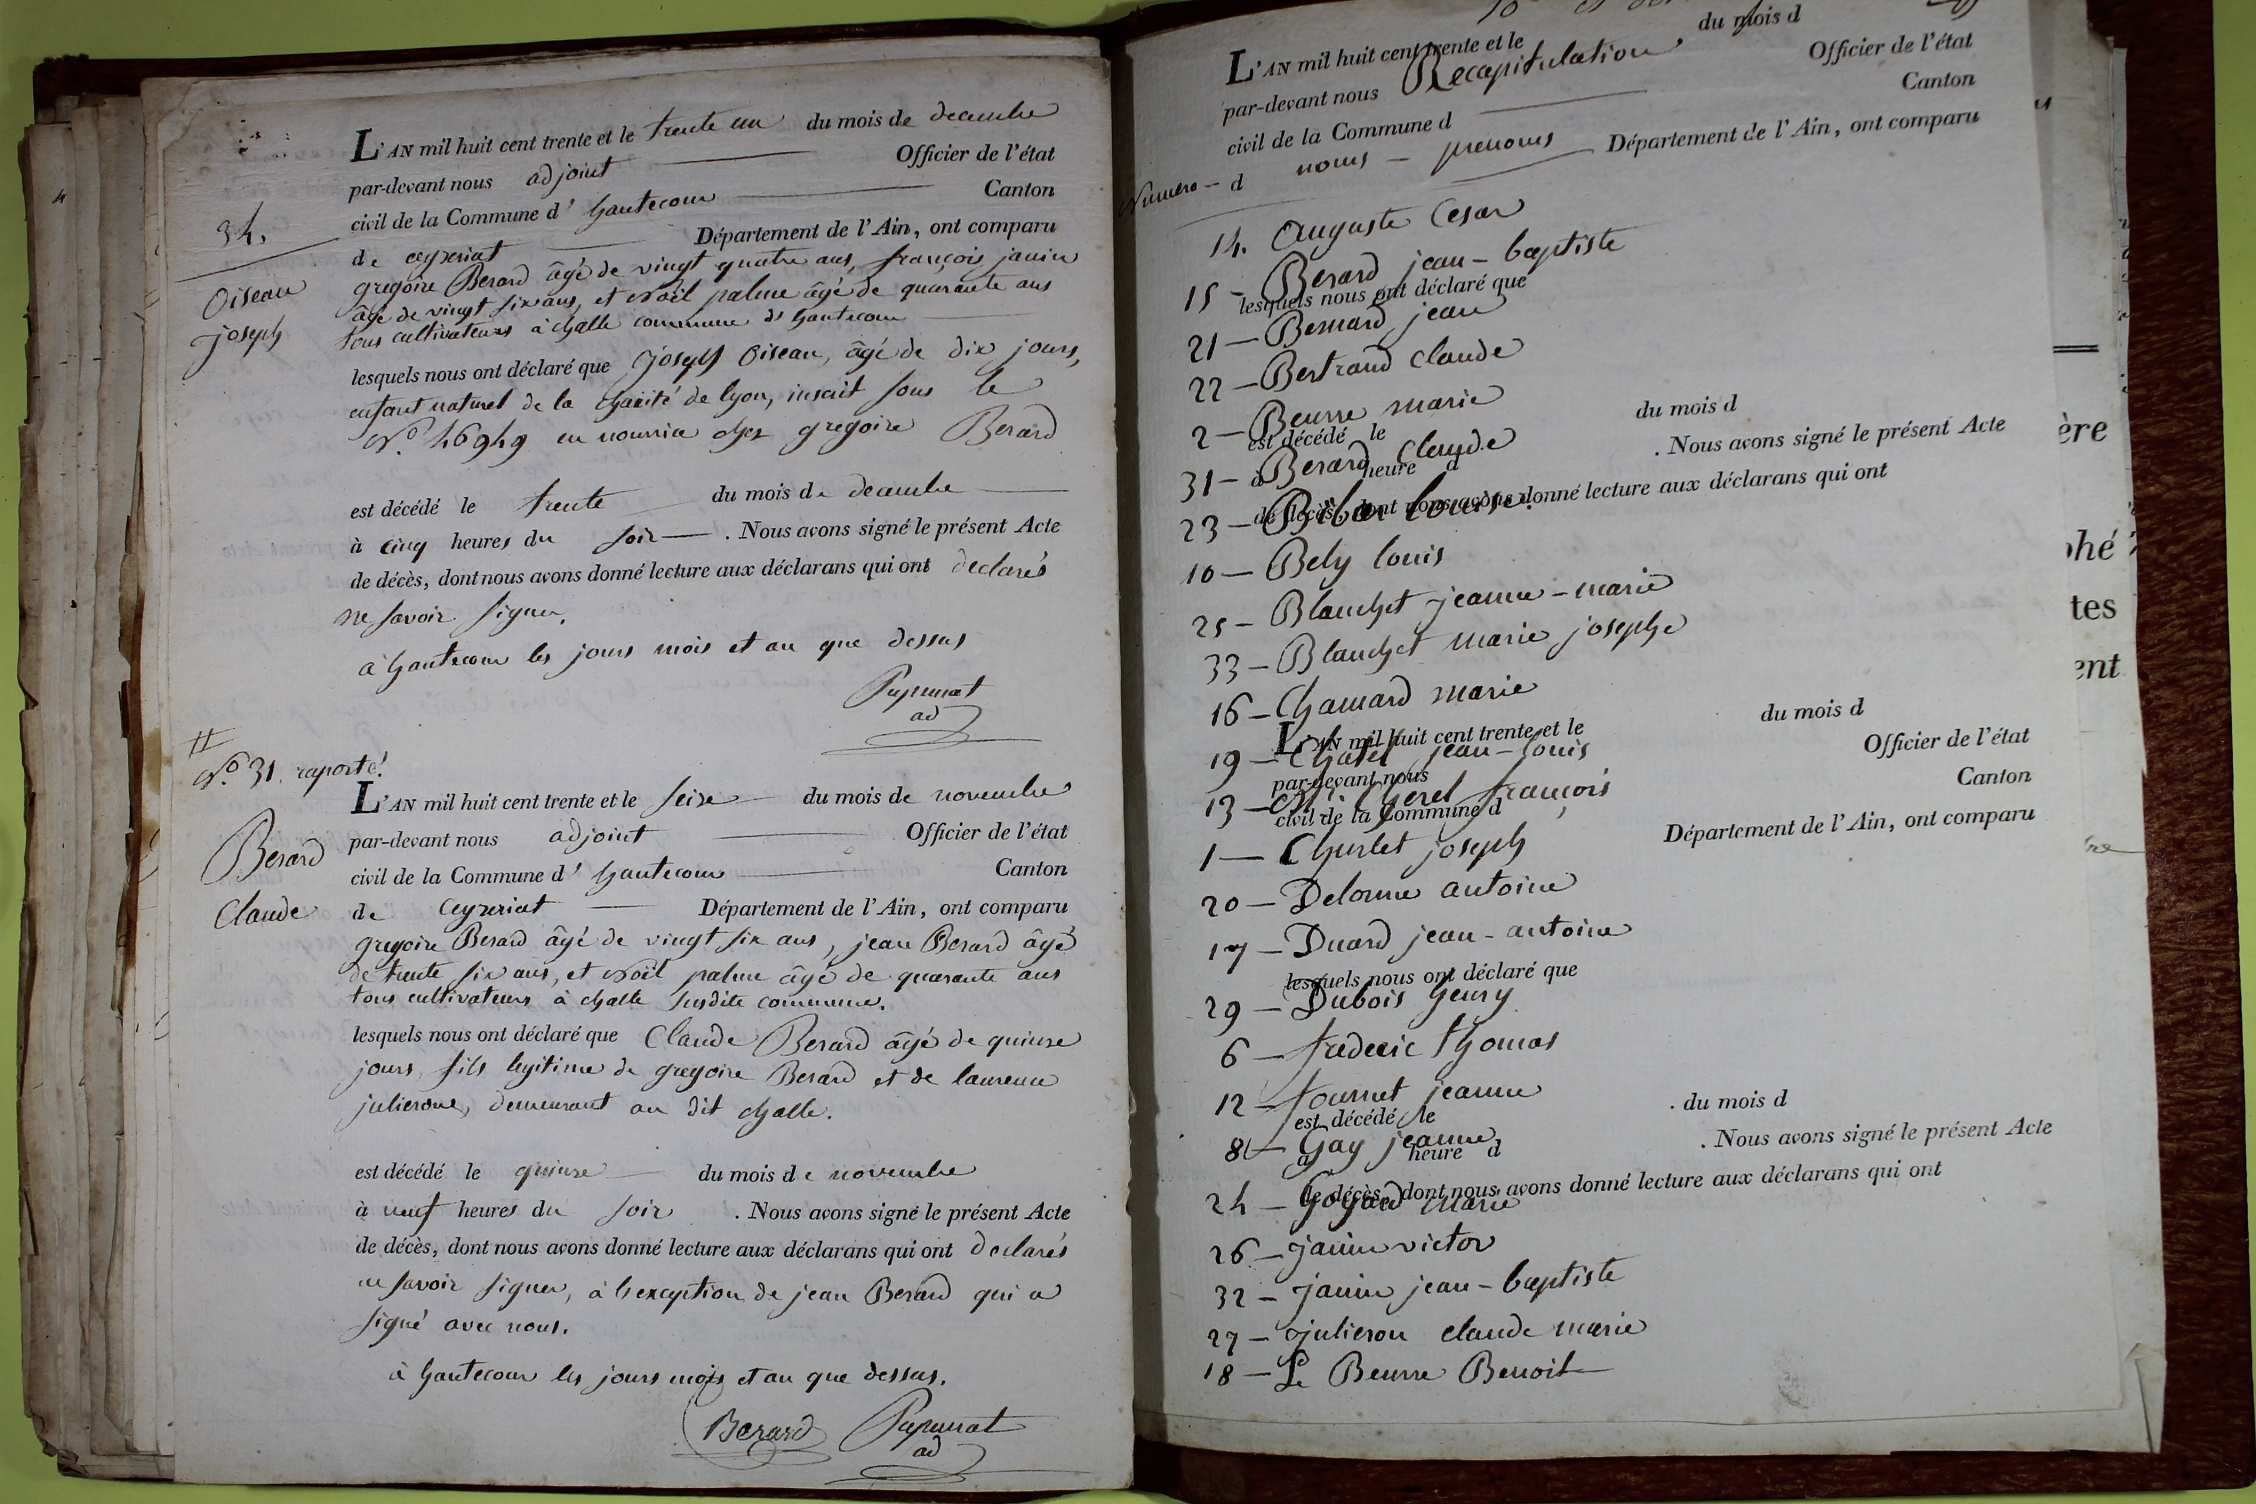 34.
Oiseau
joseph
L'AN mil huit cent trente et le trente un du mois de decembre
par-devant nous adjoint Officier de l'état
civil de la Commune d' hautecour Canton
de ceyzeriat Département de l'Ain, ont comparu
gregoire Berard âgé de vingt quatre ans, françois janin
âgé de vingt six ans, et Noël palme âgé de quarante ans
tous cultivateurs à challe commune d' hautecour
lesquels nous ont déclaré que joseph Oiseau, âgé de dix jours,
enfant naturel de la charité de lyon, inscrit sous le
N.º 46949 en nourrice chez gregoire Berard
est décédé le trente du mois de decembre
à cinq heures du soir . Nous avons signé le présent Acte
de décès, dont nous avons donné lecture aux déclarans qui ont declarés
ne savoir signer.
à hautecour les jours mois et an que dessus
ad
N.º 31. raporté.
Berard
Claude
L'AN mil huit cent trente et le seize du mois de novembre
par-devant nous adjoint Officier de l'état
civil de la Commune d' hautecour Canton
de Ceyzeriat Département de l'Ain, ont comparu
gregoire Berard âgé de vingt six ans, jean Berard âgé
de trente six ans, et Noël palme âgé de quarante ans
tous cultivateurs à challe susdite commune.
lesquels nous ont déclaré que Claude Berard âgé de quinze
jours, fils legitime de gregoire Berard et de laurence
demeurant au dit challe.
est décédé le quinze du mois de novembre
à neuf heures du soir . Nous avons signé le présent Acte
de décès, dont nous avons donné lecture aux déclarans qui ont declarés
ne savoir signer, à l'exception de jean Berard qui a
signé avec nous.
à hautecour les jours mois et an que dessus.
Berard
ad
L'AN mil huit cent trente et le du mois d
Recapitulation
par-devant nous Officier de l'état
civil de la Commune d Canton
Numero - d noms - prenoms Département de l'Ain, ont comparu
14. Auguste Cesar
15 - Berard jean-baptiste
lesquels nous ont déclaré que
21 - Bernard jean
22 - Bertrand Claude
2 - Beurre marie
est décédé le du mois d
31 - Berard Claude
à heure d . Nous avons signé le présent Acte
23 - louise
de décès, dont nous avons donné lecture aux déclarans qui ont
10 - Bely louis
25 - Blanchet jeanne-marie
33 - Blanchet marie josephe
16 - Chanard marie
L'AN mil huit cent trente et le du mois d
19 - Chatel jean-louis
par-devant nous Officier de l'état
13 - Cherel françois
civil de la Commune d Canton
1 - Churlet joseph
Département de l'Ain, ont comparu
20 - Delorme antoine
17 - Duard jean-antoine
lesquels nous ont déclaré que
29 - Dubois henry
6 - frederic thomas
12 - fournet jeanne
est décédé le . du mois d
8 - Gay jeanne
à heure d . Nous avons signé le présent Acte
de décès, dont nous avons donné lecture aux déclarans qui ont
24 - Goyard marie
26 - janin victor
32 - janin jean-baptiste
27 - julieron claude marie
18 - Le Beurre Benoit
ère
phé
tes
ent